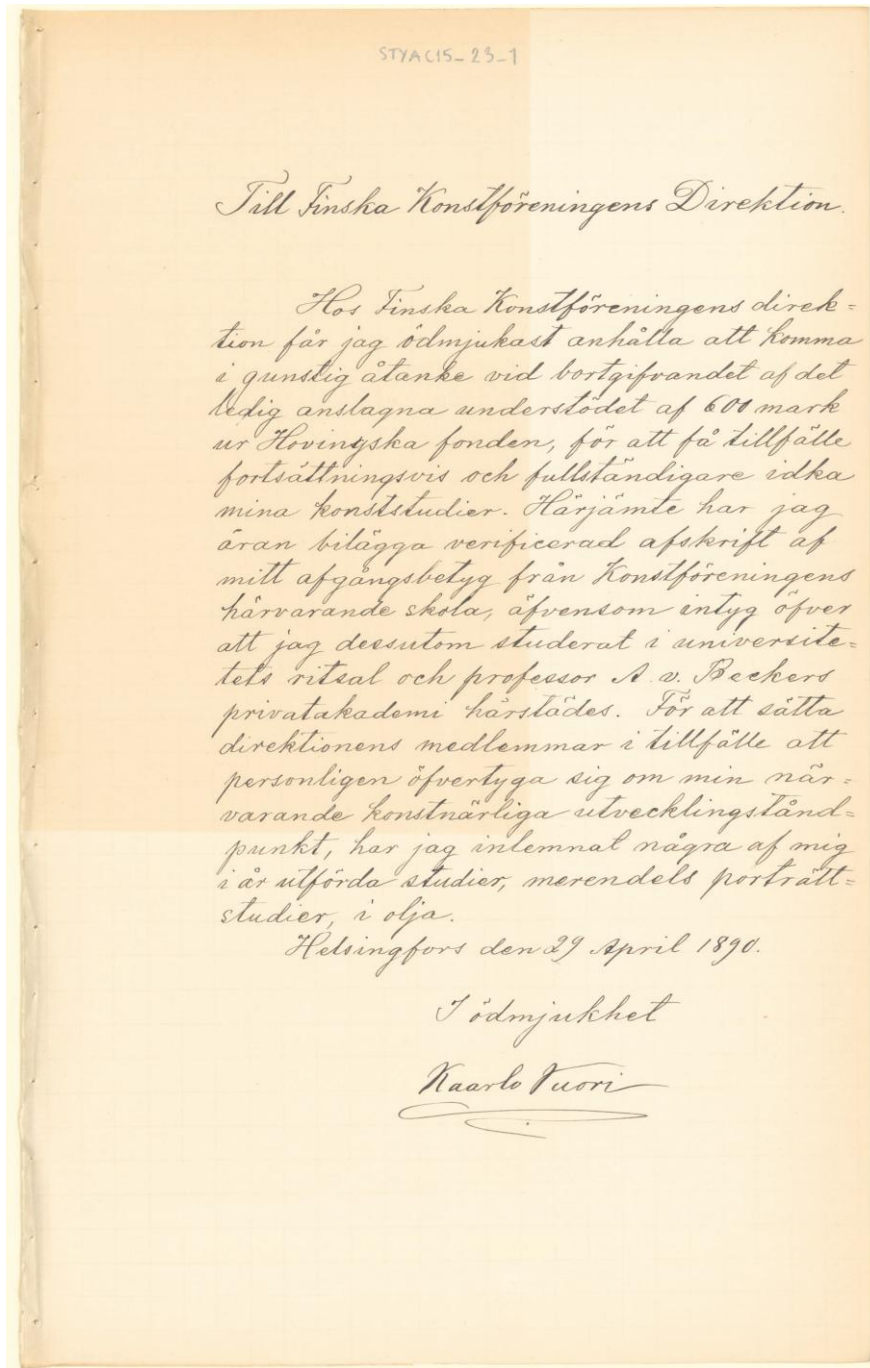 STYAC15-23-1
Till Finska Konstföreningens Direktion.
Hos Finska Konstföreningens direk=
tion får jag ödmjukast anhålla att komma
i gunstig åtanke vid bortgifvandet af det
ledig anslagna understödet af 600 mark
ur Hovingska fonden, för att få tillfälle
fortsättningsvis och fullständigare idka
mina konststudier. Härjämte har jag
äran bilägga verificerad afskrift af
mitt afgångsbetyg från Konstföreningens
härvarande skola, äfvensom intyg öfver
att jag dessutom studerat i universite=
tets ritsal och professor A. v. Beckers
privatakademi härstädes. För att sätta
direktionens medlemmar i tillfälle att
personligen öfvertyga sig om min när=
varande konstnärliga utvecklingstånd=
punkt, har jag inlemnat några af mig
i år utförda studier, merendels porträtt=
studier, i olja.
Helsingfors den 29 April 1890.
I ödmjukhet
Kaarlo Vuori